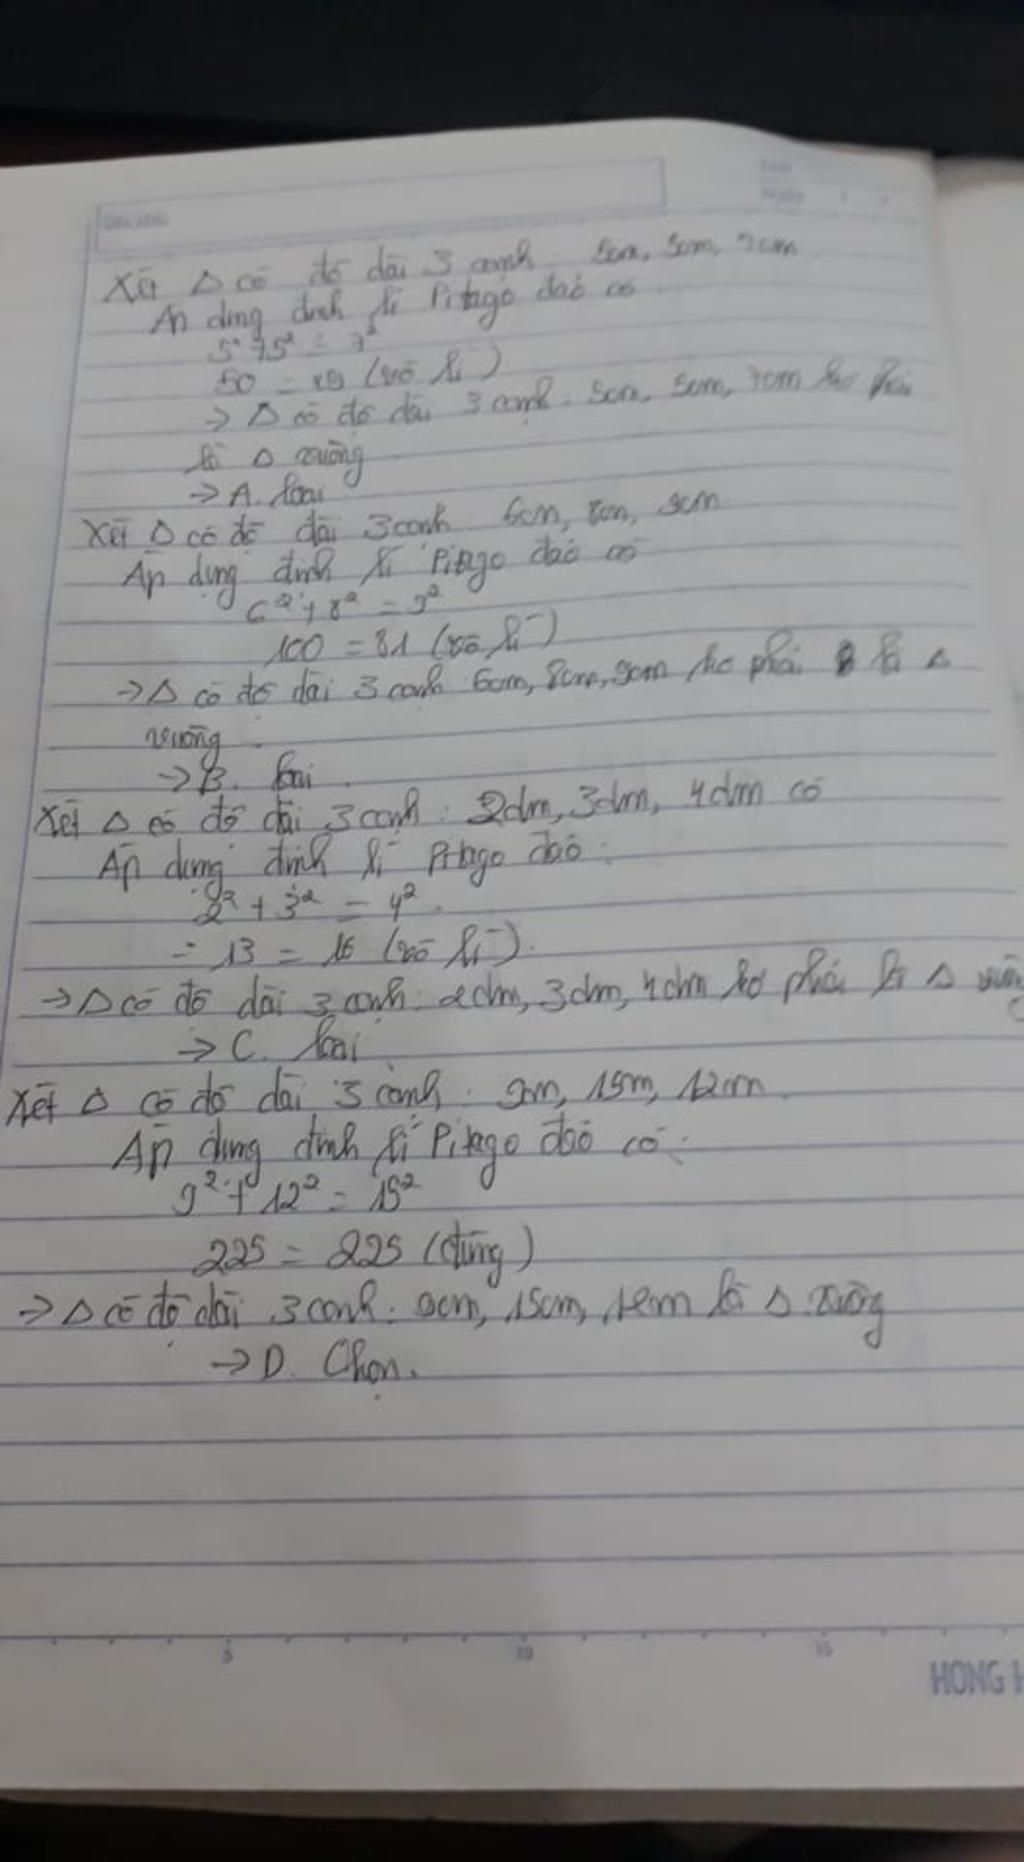 Xét Δ có độ dài 3 cạnh 5cm, 5cm, 7cm
Áp dụng định lí Pitago đảo có
5² + 5² = 7²
50 = 49 (vô lí)
→ Δ có độ dài 3 cạnh: 5cm, 5cm, 7cm ko phải
là Δ vuông
→ A. loại
Xét Δ có độ dài 3 cạnh 6cm, 8cm, 9cm
Áp dụng định lí Pitago đảo có
6² + 8² = 9²
100 = 81 (vô lí)
→ Δ có độ dài 3 cạnh 6cm, 8cm, 9cm ko phải là Δ
vuông
→ B. loại
Xét Δ có độ dài 3 cạnh: 2dm, 3dm, 4dm có
Áp dụng định lí Pitago đảo:
2² + 3² = 4²
= 13 = 16 (vô lí)
→ Δ có độ dài 3 cạnh: 2dm, 3dm, 4dm ko phải là Δ vuông
→ C. loại
Xét Δ có độ dài 3 cạnh: 9m, 15m, 12m
Áp dụng định lí Pitago đảo có:
9² + 12² = 15²
225 = 225 (đúng)
→ Δ có độ dài 3 cạnh: 9cm, 15cm, 12cm là Δ vuông
→ D. Chọn.
5 10 15
HONG H